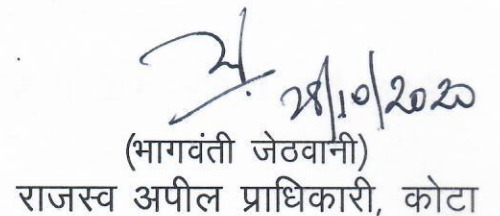 28/10/2020
(भागवंती जेठवानी)
राजस्व अपील प्राधिकारी, कोटा